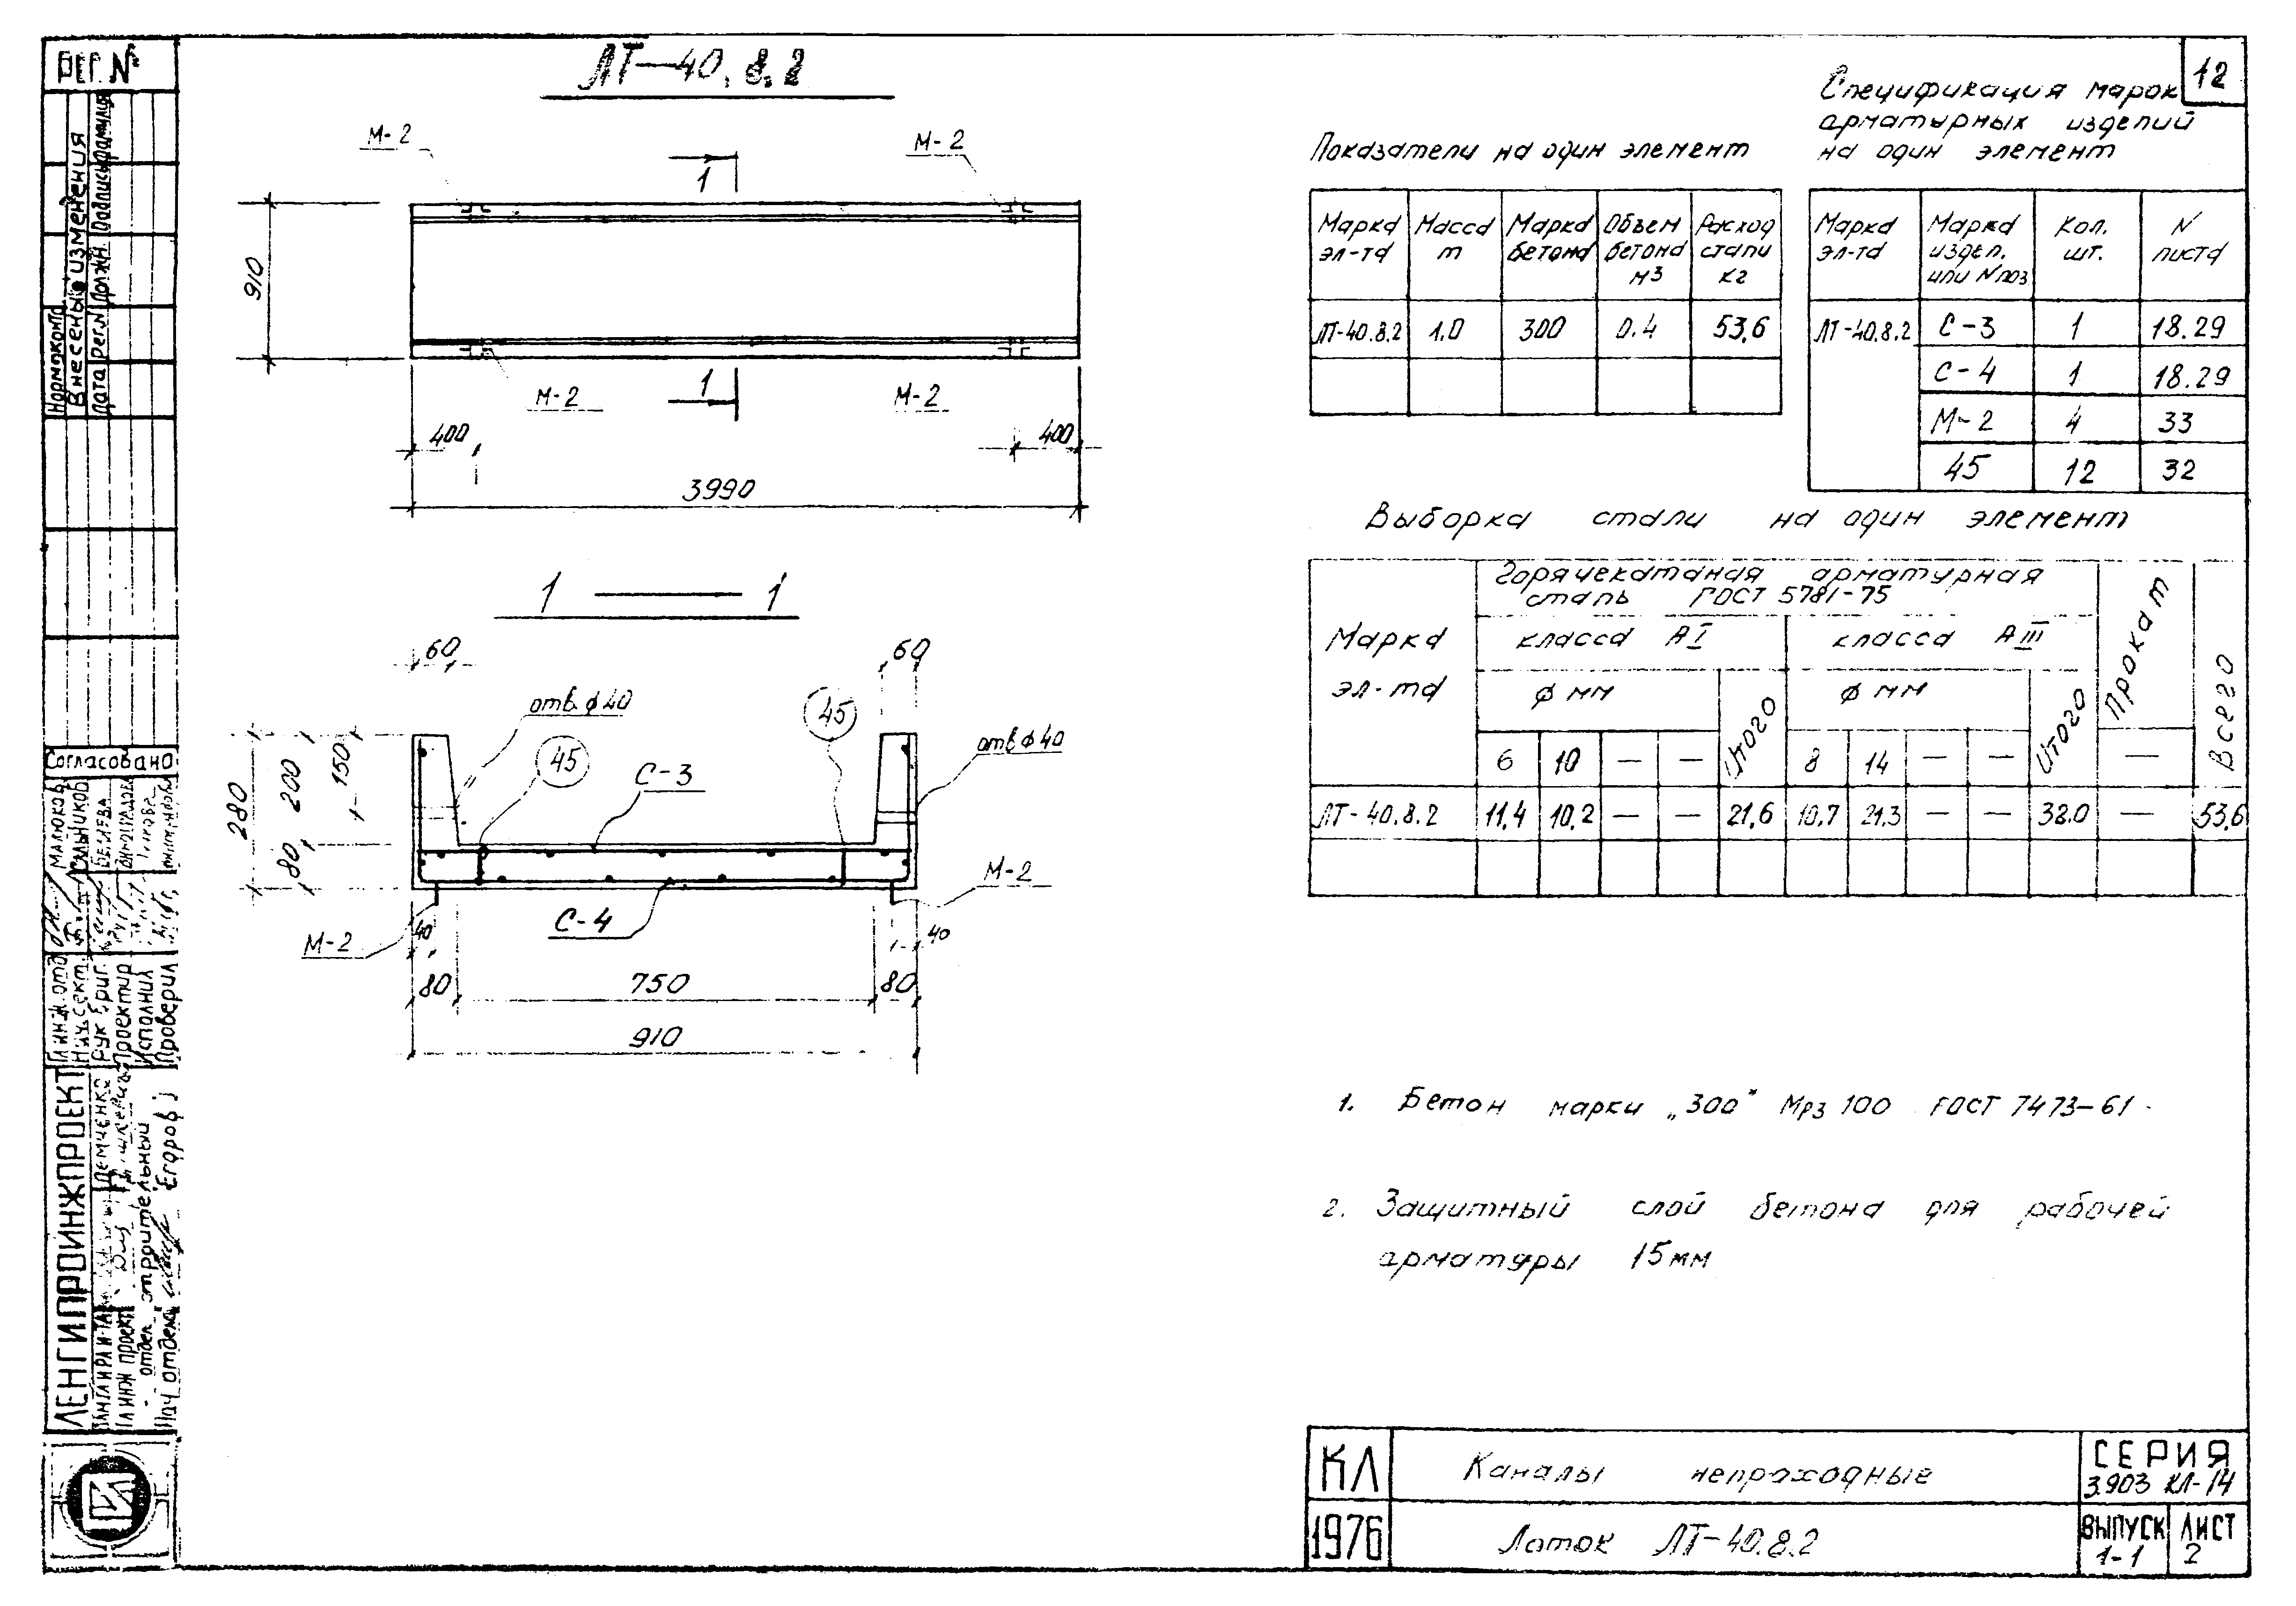 РЕГ. №
ЛТ-40.8.2
12
М-2
М-2
1
910
1
М-2
М-2
400
400
3990
1 — 1
60
60
отв ф 40
45
45
отв ф 40
С-3
280
200
150
80
М-2
С-4
М-2
40
40
80
750
80
910
Показатели на один элемент
Марка эл-та
Масса т
Марка бетона
Объем бетона м3
Расход стали кг
ЛТ-40.8.2 1.0 300 0.4 53,6
Спецификация марок
арматурных изделий
на один элемент
Марка эл-та
Марка издел. или N поз
Кол. шт.
N листа
ЛТ-40.8.2 С-3 1 18.29
С-4 1 18.29
М-2 4 33
45 12 32
Выборка стали на один элемент
Марка эл-та
Горячекатаная арматурная
сталь ГОСТ 5781-75
Прокат
Всего
класса АI
класса АIII
ф мм
Итого
ф мм
Итого
6 10 — — 8 14 — — —
ЛТ-40.8.2 11,4 10,2 — — 21,6 10,7 21,3 — — 32.0 — 53,6
1. Бетон марки „300" Мрз 100 ГОСТ 7473-61
2. Защитный слой бетона для рабочей
арматуры 15мм
КЛ
Каналы непроходные
СЕРИЯ
3.903 КЛ-14
1976
Лоток ЛТ-40.8.2
ВЫПУСК
1-1
ЛИСТ
2
Нормоконтр
Внесеные изменения
Дата Рег.N Должн. Подпись Фамилия
Согласовано
Нач. сект.
Рук. бриг.
Проектир
Исполнил
Проверил
ЛЕНГИПРОИНЖПРОЕКТ
Демченко
отдел строительный
Нач отдела
Егоров